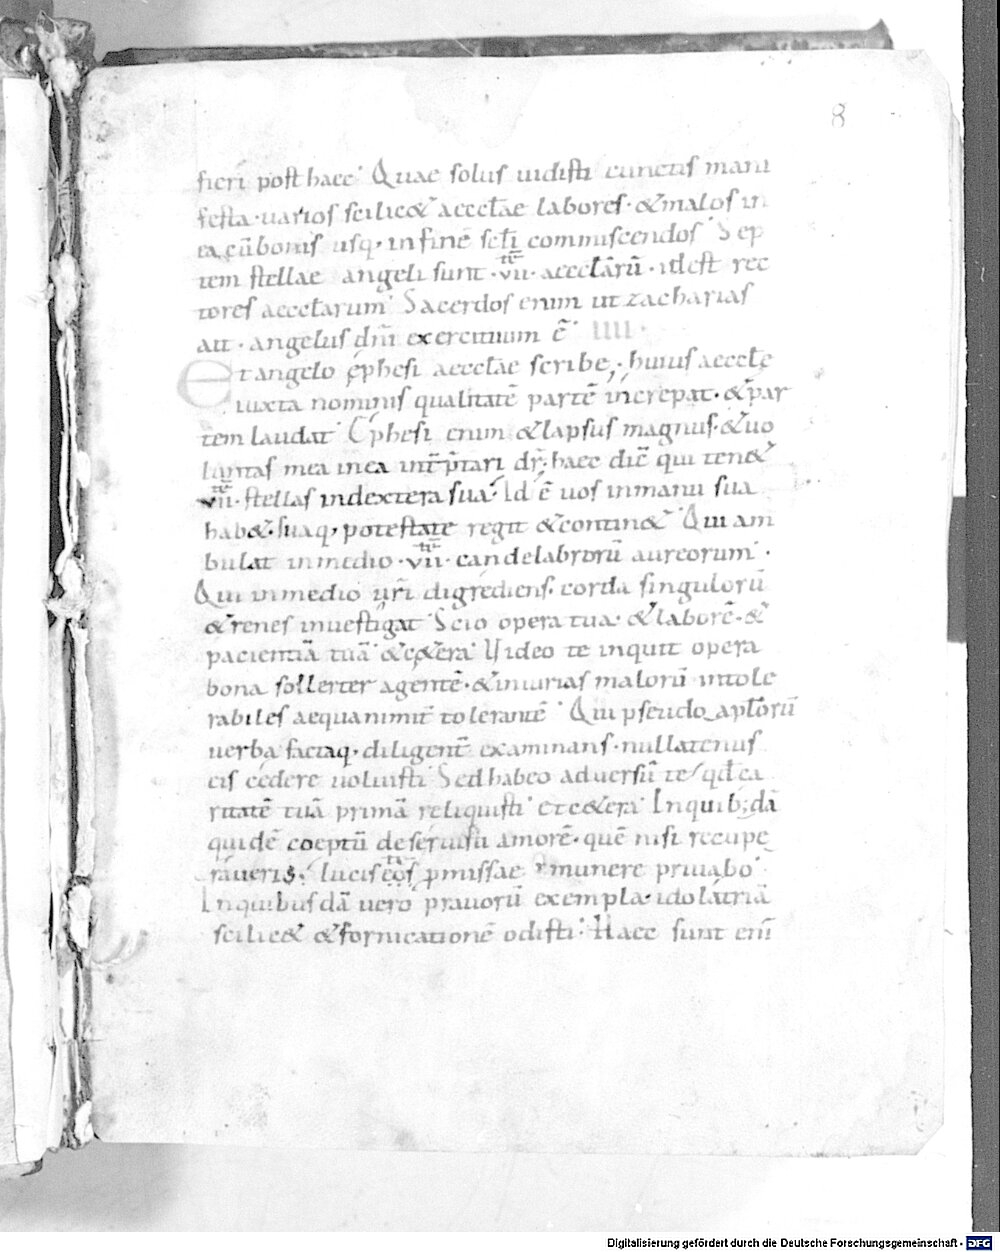 8
fieri post haec· Quae solus uidisti cunctis mani
festa· uarios scilic& aeccłae labores· & malos in
ea cū bonis usq; in finē scłi commiscendos· Sep
tem stellae angeli sunt ·vii· aeccłarū· id est rec
tores aeccłarum· Sacerdos enim ut zacharias
ait· angelus dn̄i exercituum ē· IIII·
Et angelo ephesi aeccłae scribe· huius aeccłe
iuxta nominis qualitatē partē increpat· & par
tem laudat· Ephesi enim & lapsus magnus· & uo
luntas mea in ea int̄p̄tari dr̄; haec dic̄ qui ten&
·vii· stellas in dextera sua· Id ē uos in manu sua
hab&· suaq; potestate regit & contin&· Qui am
bulat in medio ·vii· candelabrorū aureorum·
Qui in medio ur̄i digrediens· corda singulorū
& renes inuestigat· Scio opera tua· & laborē· &
pacientiā tuā· & c&era· Uideo te inquit opera
bona sollerter agentē· & iniurias malorū intole
rabiles aequanimit̄ tolerantē· Qui pseudo apłorū
uerba factaq· diligent̄ examinans· nullatenus
eis cedere uoluisti· Sed habeo aduersū te/ qđ ca
ritatē tuā primā reliquisti· et c&era· In quib;dā
quidē coeptū deseruisti amorē· quē nisi recupe
raueris· lucis eos p̄missae munere priuabo·
In quibusdā uero prauorū exempla· idolatriā
scilic& & fornicationē odisti· Haec sunt eni̅
Digitalisierung gefördert durch die Deutsche Forschungsgemeinschaft - DFG